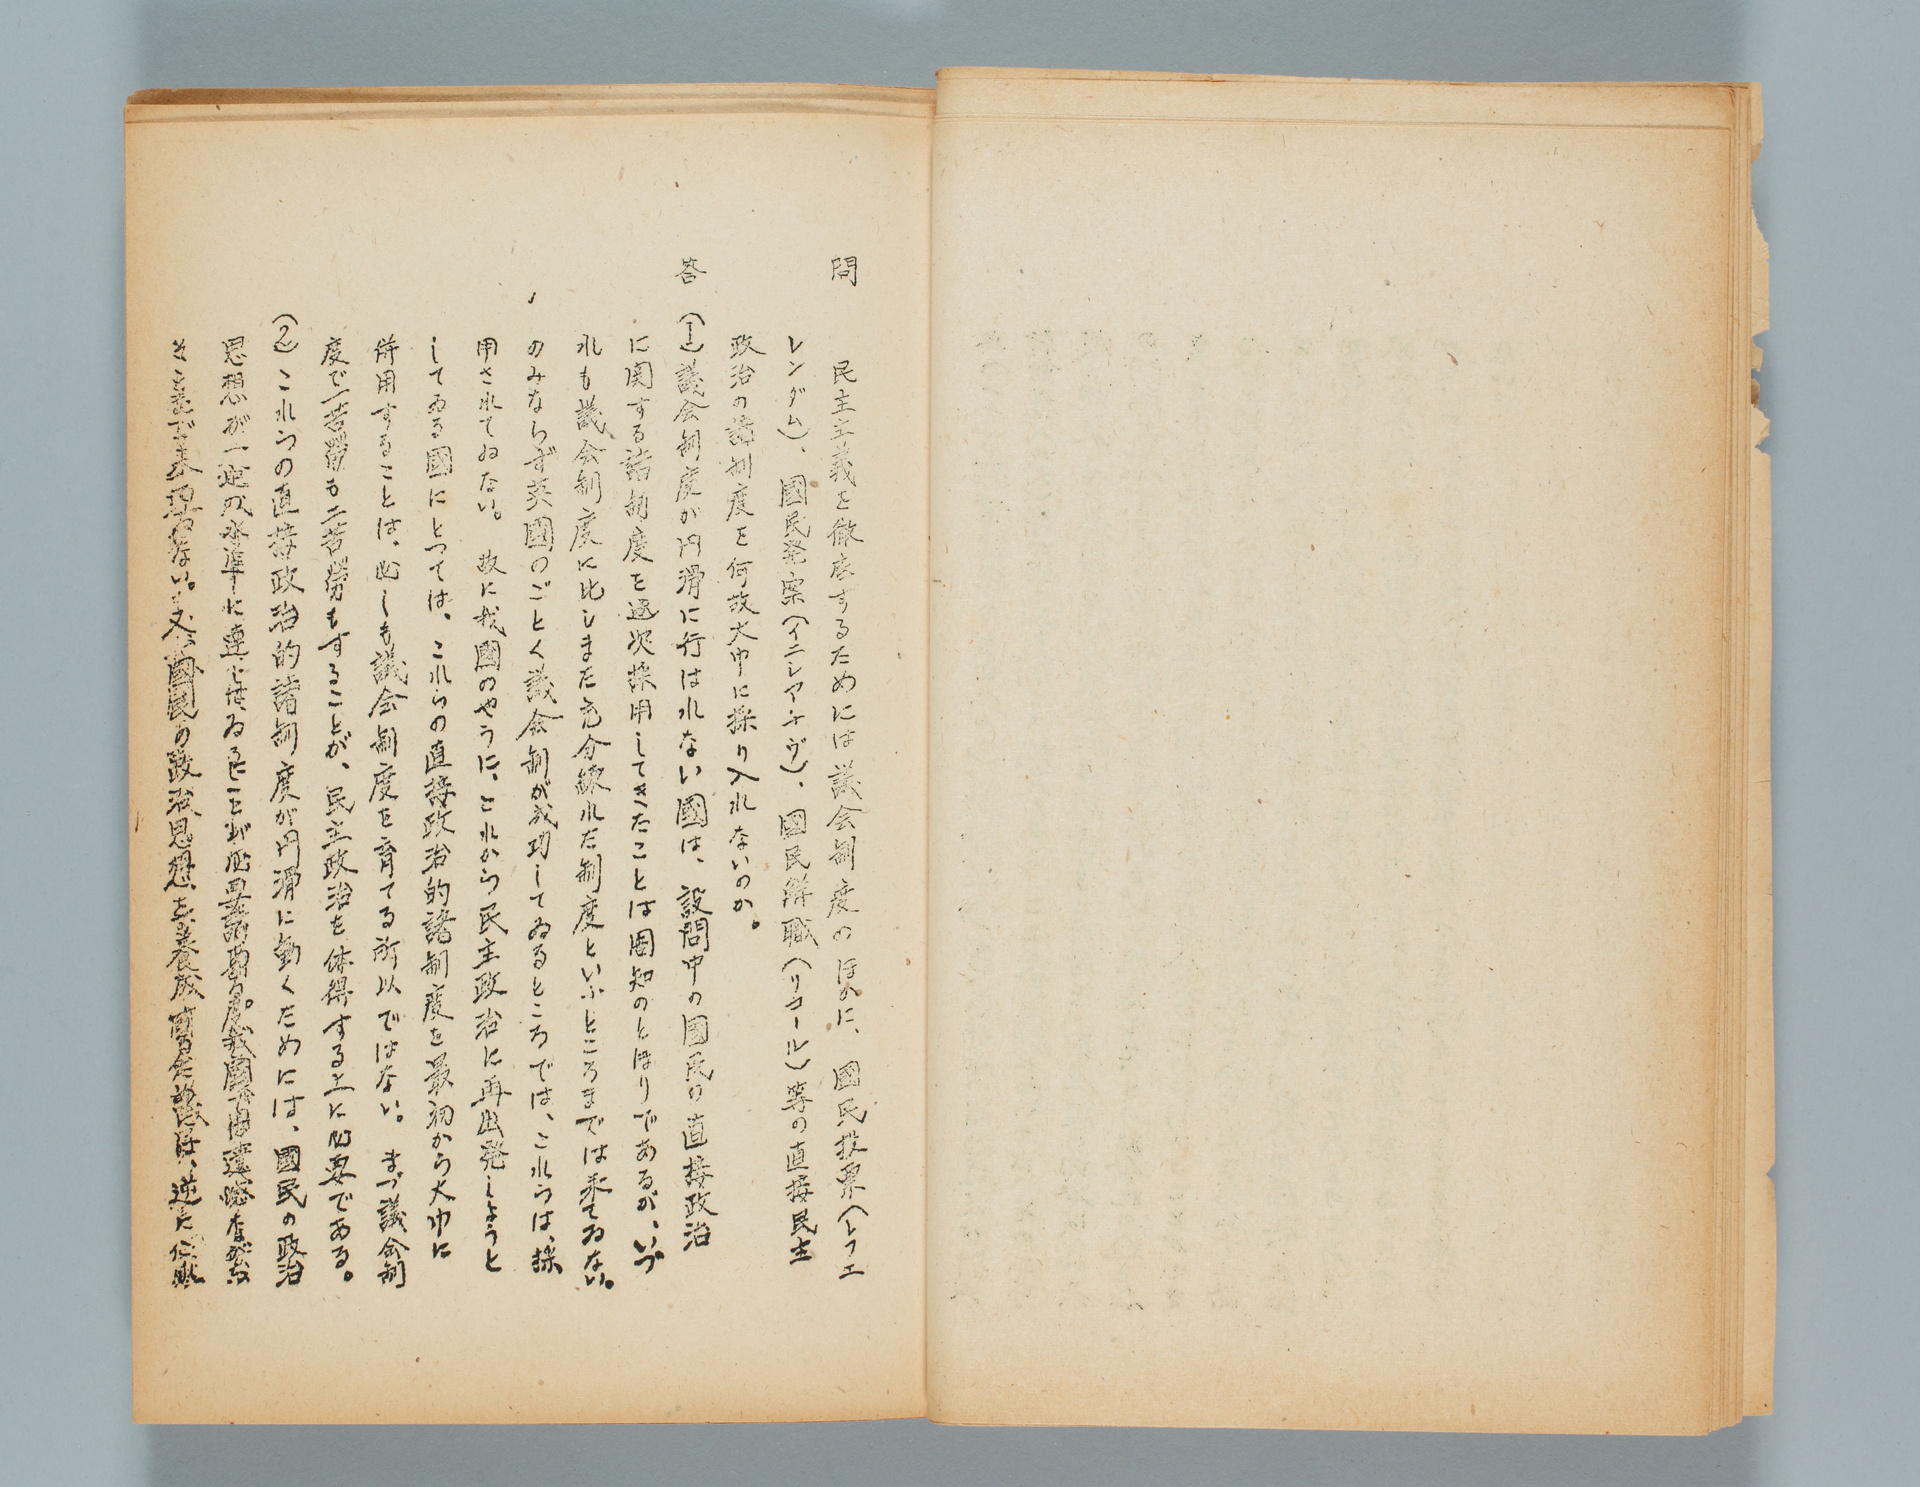 問
民主主義を徹底するためには議会制度のほかに、國民投票(レフエ
レンダム)、國民発案(イニシアチヴ)、國民解職(リコール)等の直接民主
政治の諸制度を何故大巾に採り入れないのか。
答
(1)議会制度が円滑に行はれない國は、設問中の國民の直接政治
に関する諸制度を逐次採用してきたことは周知のとほりであるが、いづ
れも議会制度に比しまだ充分練れた制度といふところまでは来てゐない。
のみならず英國のごとく議会制が成功してゐるところでは、これらは、採
用されてゐない。故に我國のやうに、これから民主政治に再出発しようと
してゐる國にとつては、これらの直接政治的諸制度を最初から大巾に
併用することは、必しも議会制度を育てる所以ではない。まづ議会制
度で一苦労も二苦労もすることが、民主政治を体得する上に必要である。
(2)これらの直接政治的諸制度が円滑に動くためには、國民の政治
思想が一定の水準に達してゐることが必要 我國では遺憾ながら
そこまで来てゐない。又、國民の政治思想を養成 逆に